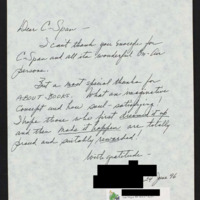 Dear C-Span —
I can't thank you enough for
C-Span and all its wonderful On-Air
persons.
But a most special thanks for
ABOUT BOOKS. What an imaginative
concept and how soul-satisfying!
I hope those who first dreamed it up
and then make it happen are totally
proud and suitably rewarded!
With gratitude -
24 June 96